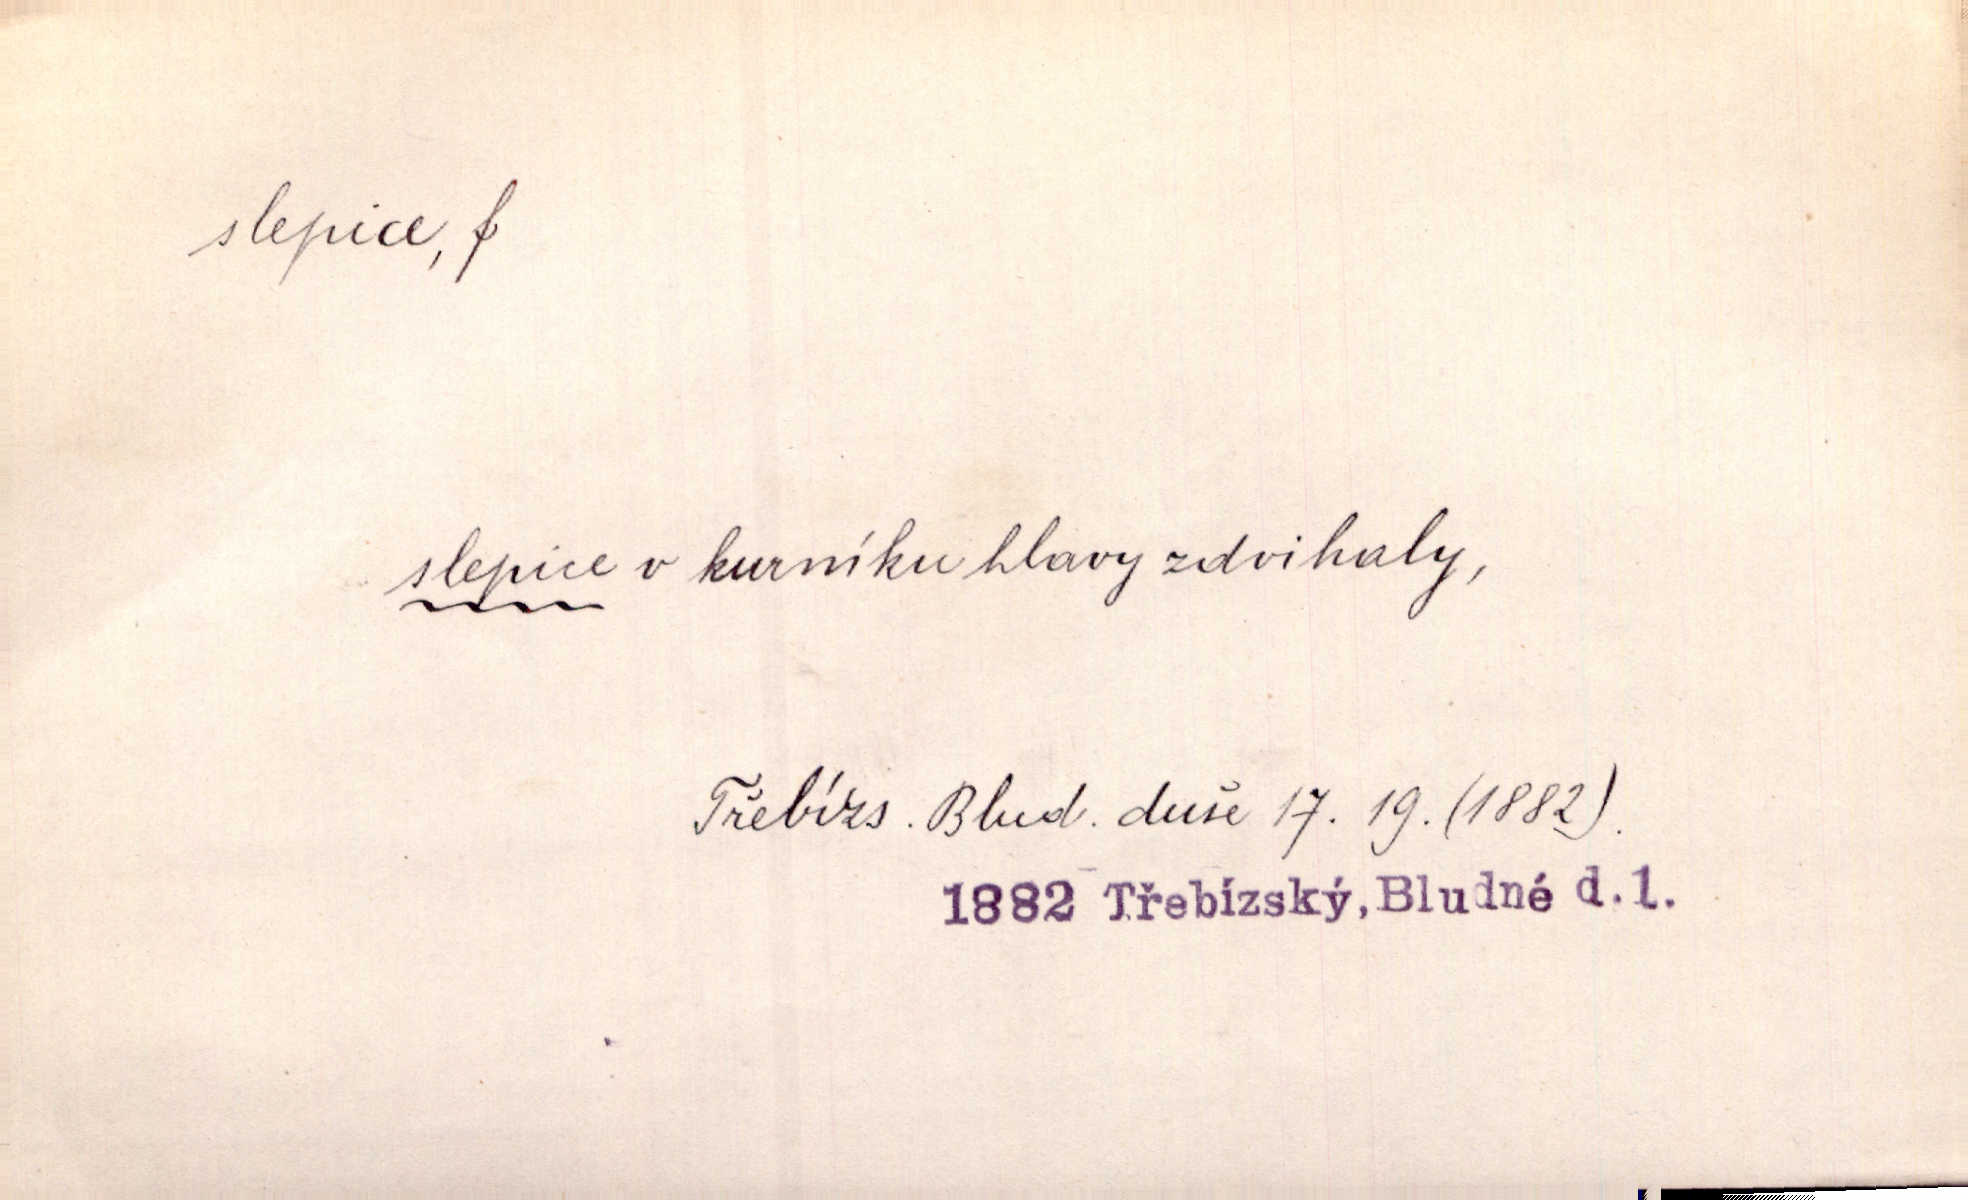 slepice, f
slepice v kurníku hlavy zdvihaly,
Třebízs. Blud. duše 17. 19. (1882).
1882 Třebízský, Bludné d.1.